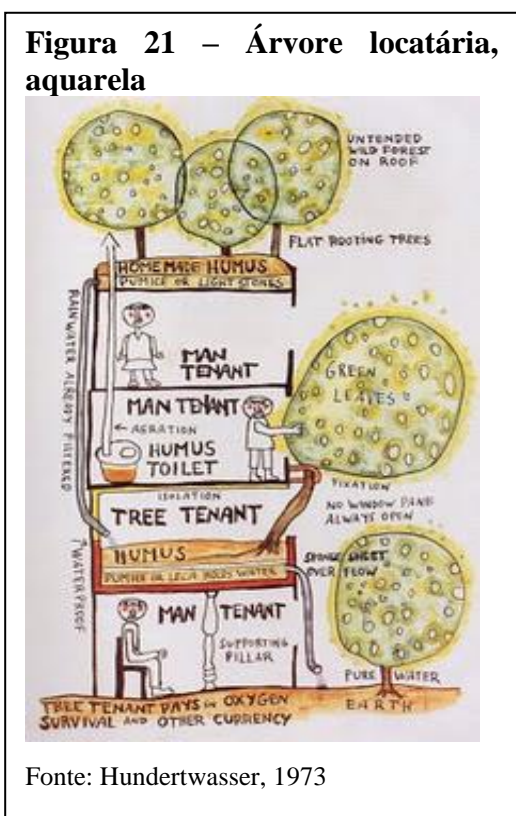 Figura 21 – Árvore locatária,
aquarela
UNTENDED
WILD FOREST
ON ROOF
FLAT ROOTING TREES
HOMEMADE HUMUS
PUMICE OR LIGHT STONES
RAINWATER ALREADY FILTERED
MAN
TENANT
GREEN
LEAVES
MAN TENANT
← AERATION
HUMUS
TOILET
ISOLATION
TREE TENANT
FIXATION
NO WINDOW PANE
ALWAYS OPEN
HUMUS
PUMICE OR LECA HOLDS WATER
OVER FLOW
WATERPROOF
MAN TENANT
SUPPORTING
PILLAR
PURE WATER
EARTH
TREE TENANT PAYS IN OXYGEN
SURVIVAL AND OTHER CURRENCY
Fonte: Hundertwasser, 1973